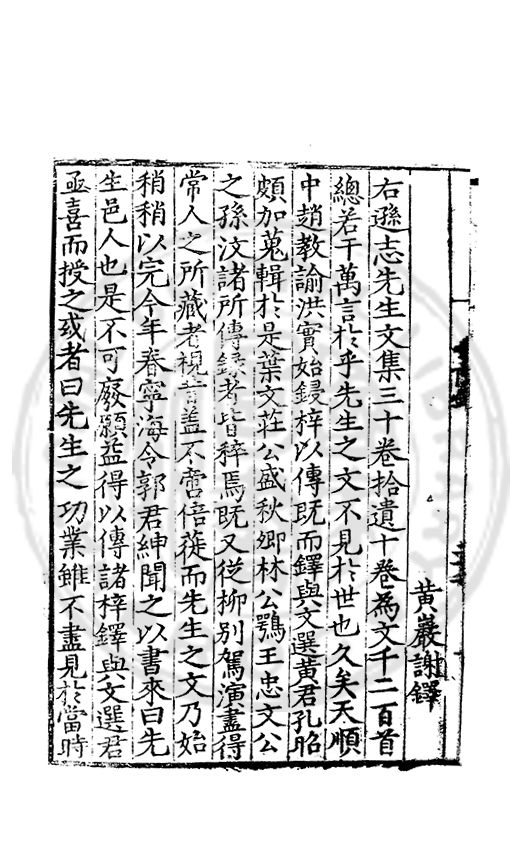 黃巖謝鐸
右遜志先生文集三十卷拾遺十卷為文千二百首
總若干萬言於乎先生之文不見於世也久矣天順
中趙教諭洪實始鋟梓以傳既而鐸與文選黃君孔昭
頗加蒐輯於是葉文莊公盛秋卿林公鶚王忠文公
之孫汶諸所傳錄者皆稡焉既又從柳別駕演盡得
常人之所藏者視昔蓋不啻倍蓰而先生之文乃始
稍稍以完今年春寧海令郭君紳聞之以書來曰先
生邑人也是不可廢願益得以傳諸梓鐸與文選君
亟喜而授之或者曰先生之功業雖不盡見於當時